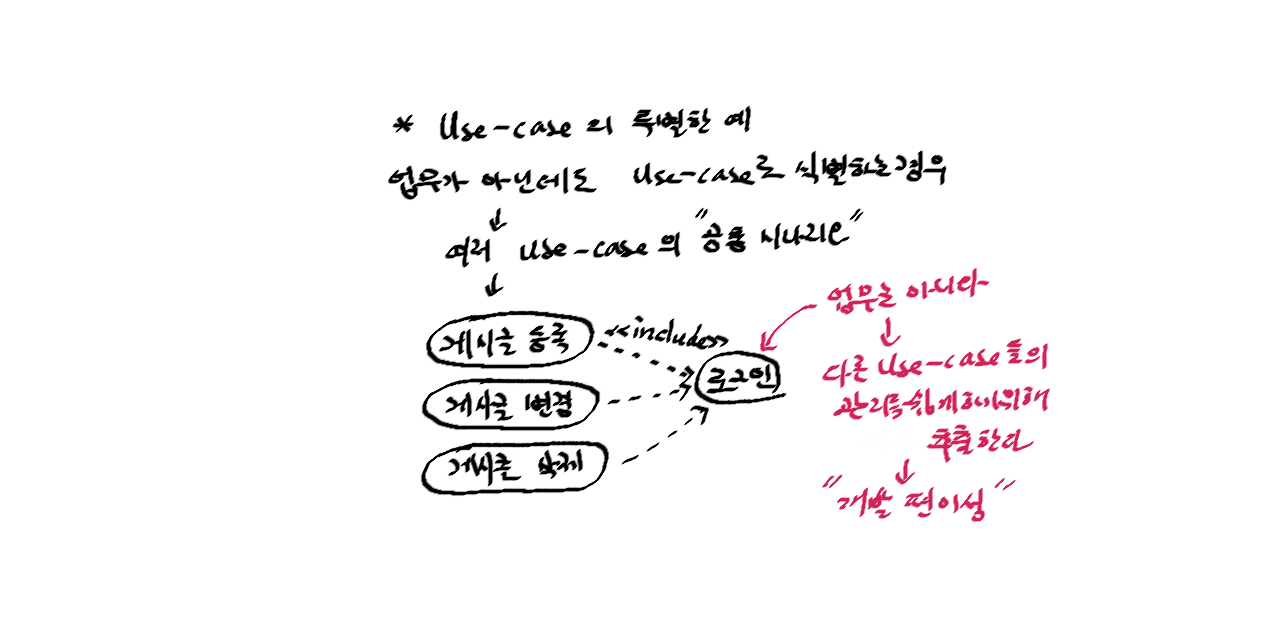 * Use-case의 특별한 예
업무가 아닌데도 use-case로 식별하는 경우
여러 use-case의 "공통 시나리오"
게시글 등록
<<include>>
게시글 변경
게시글 삭제
로그인
업무는 아니다
다른 use-case들의
관리를 쉽게하기위해
추출한다
"개발 편이성"